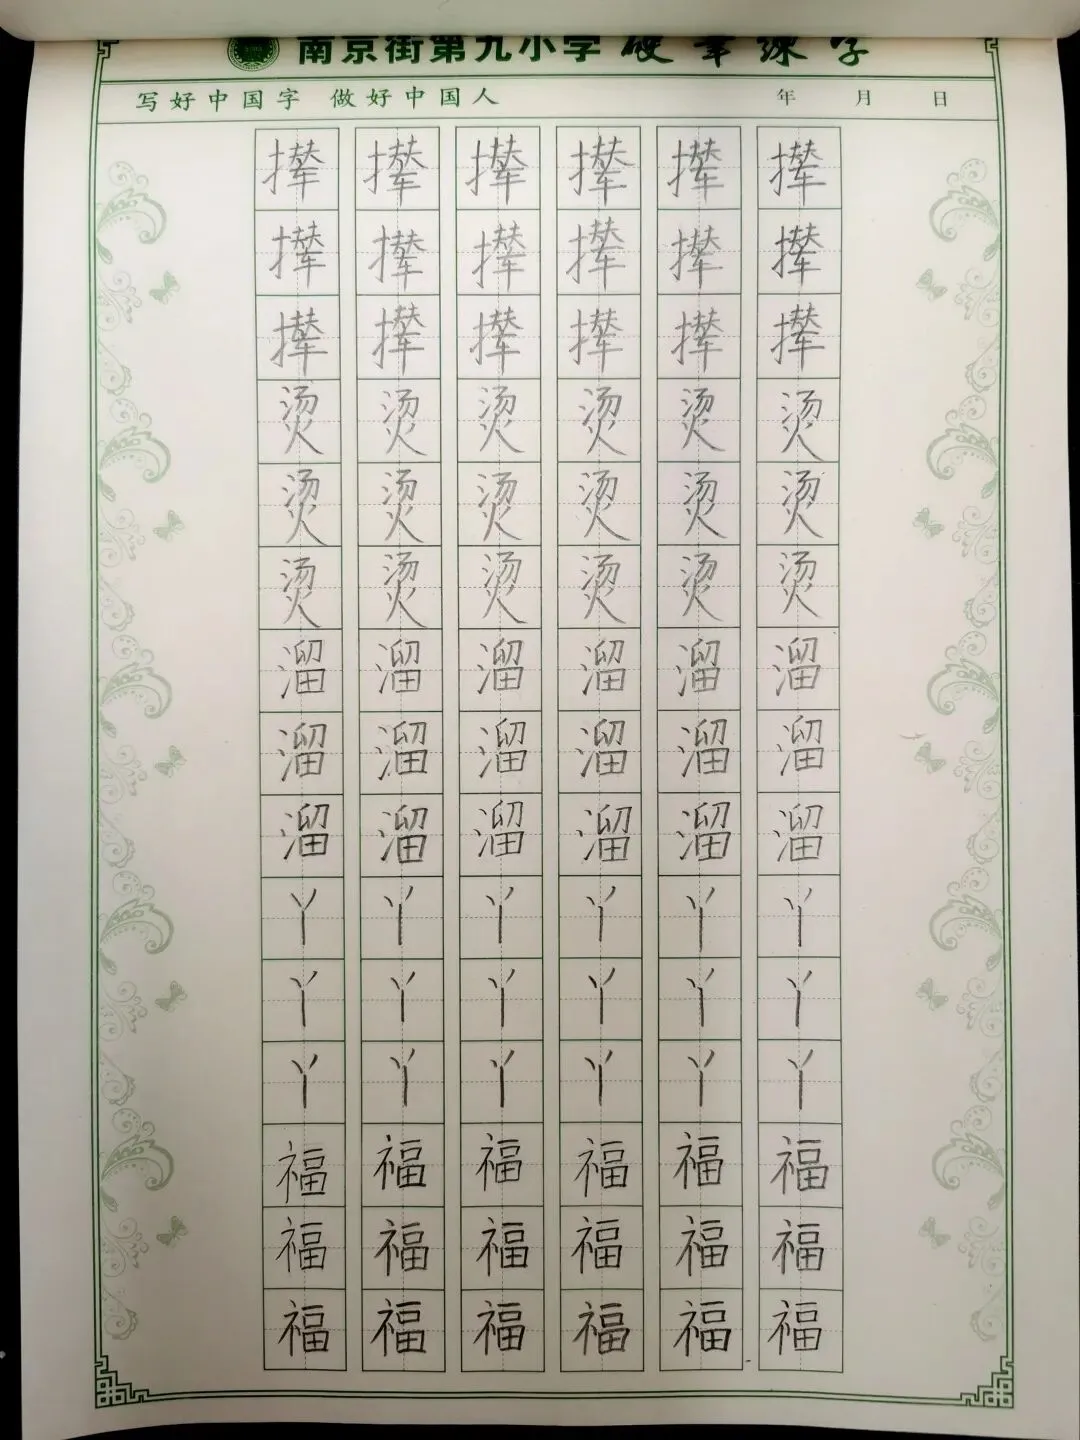 南京街第九小学 硬筆练字
写好中国字 做好中国人 年 月 日
撵 撵 撵 撵 撵 撵
撵 撵 撵 撵 撵 撵
撵 撵 撵 撵 撵 撵
烫 烫 烫 烫 烫 烫
烫 烫 烫 烫 烫 烫
烫 烫 烫 烫 烫 烫
溜 溜 溜 溜 溜 溜
溜 溜 溜 溜 溜 溜
溜 溜 溜 溜 溜 溜
丫 丫 丫 丫 丫 丫
丫 丫 丫 丫 丫 丫
丫 丫 丫 丫 丫 丫
福 福 福 福 福 福
福 福 福 福 福 福
福 福 福 福 福 福